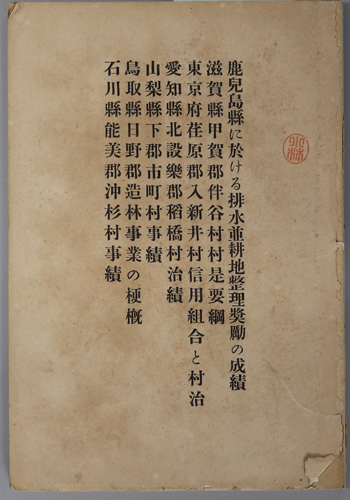 鹿兒島縣に於ける排水並耕地整理獎勵の成績
滋賀縣甲賀郡伴谷村村是要綱
東京府荏原郡入新井村信用組合と村治
愛知縣北設樂郡稻橋村治績
山梨縣下郡市町村事績
鳥取縣日野郡造林事業の梗槪
石川縣能美郡沖杉村事績